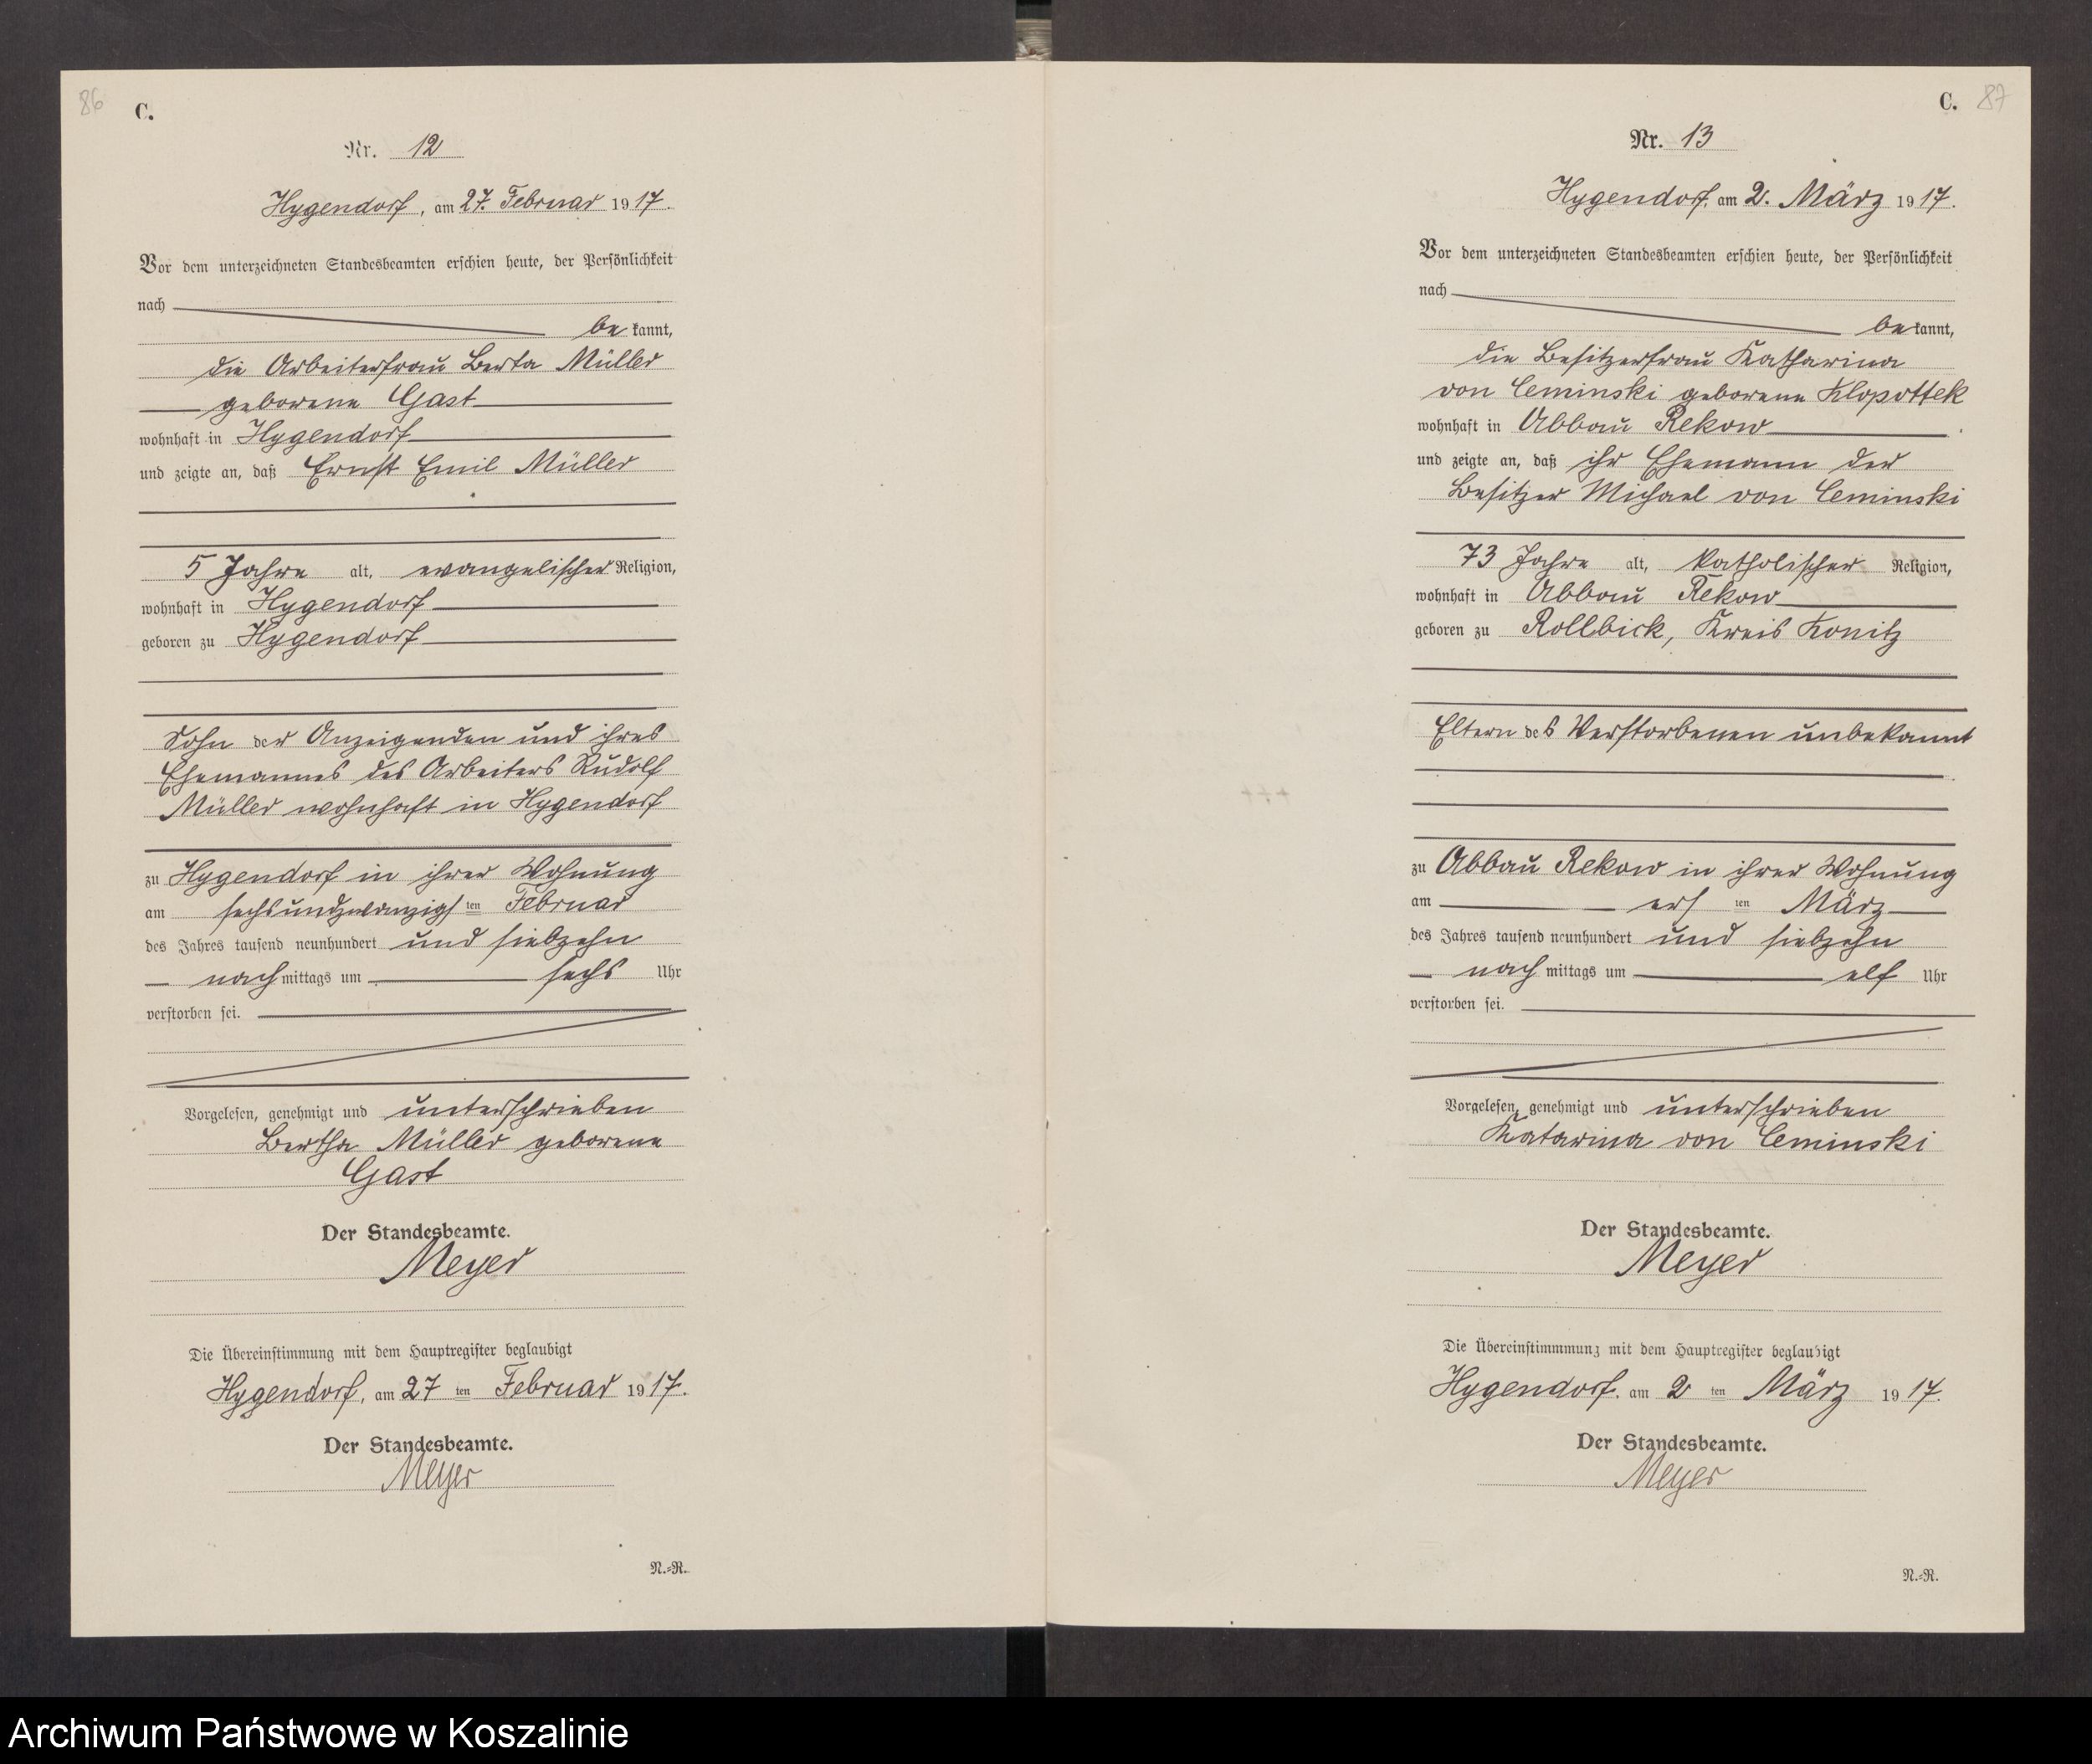 86
C.
Nr. 12
Hygendorf, am 27. Februar 1917.
Vor dem unterzeichneten Standesbeamten erschien heute, der Persönlichkeit
nach
be kannt,
die Arbeiterfrau Berta Müller
geborene Gast
wohnhaft in Hygendorf
und zeigte an, daß Ernst Emil Müller
5 Jahre alt, evangelischer Religion,
wohnhaft in Hygendorf
geboren zu Hygendorf
Sohn der Anzeigenden und ihres
Ehemannes des Arbeiters Rudolf
Müller wohnhaft in Hygendorf
zu Hygendorf in ihrer Wohnung
am sechsundzwanzigs ten Februar
des Jahres tausend neunhundert und siebzehn
nach mittags um sechs Uhr
verstorben sei.
Vorgelesen, genehmigt und unterschrieben
Bertha Müller geborene
Gast
Der Standesbeamte.
Meyer
Die Übereinstimmung mit dem Hauptregister beglaubigt
Hygendorf, am 27 ten Februar 1917.
Der Standesbeamte.
Meyer
N.=R.
C. 87
Nr. 13
Hygendorf, am 2. März 1917.
Vor dem unterzeichneten Standesbeamten erschien heute, der Persönlichkeit
nach
be kannt,
die Besitzerfrau Katharina
von Ceminski geborene Klopottek
wohnhaft in Abbau Rekow
und zeigte an, daß ihr Ehemann der
Besitzer Michael von Ceminski
73 Jahre alt, katholischer Religion,
wohnhaft in Abbau Rekow
geboren zu Rollbick, Kreis Konitz
Eltern des Verstorbenen unbekannt
zu Abbau Rekow in ihrer Wohnung
am ers ten März
des Jahres tausend neunhundert und siebzehn
nach mittags um elf Uhr
verstorben sei.
Vorgelesen, genehmigt und unterschrieben
Katarina von Ceminski
Der Standesbeamte.
Meyer
Die Übereinstimmmung mit dem Hauptregister beglaubigt
Hygendorf. am 2 ten März 1917.
Der Standesbeamte.
Meyer
N.=R.
Archiwum Państwowe w Koszalinie